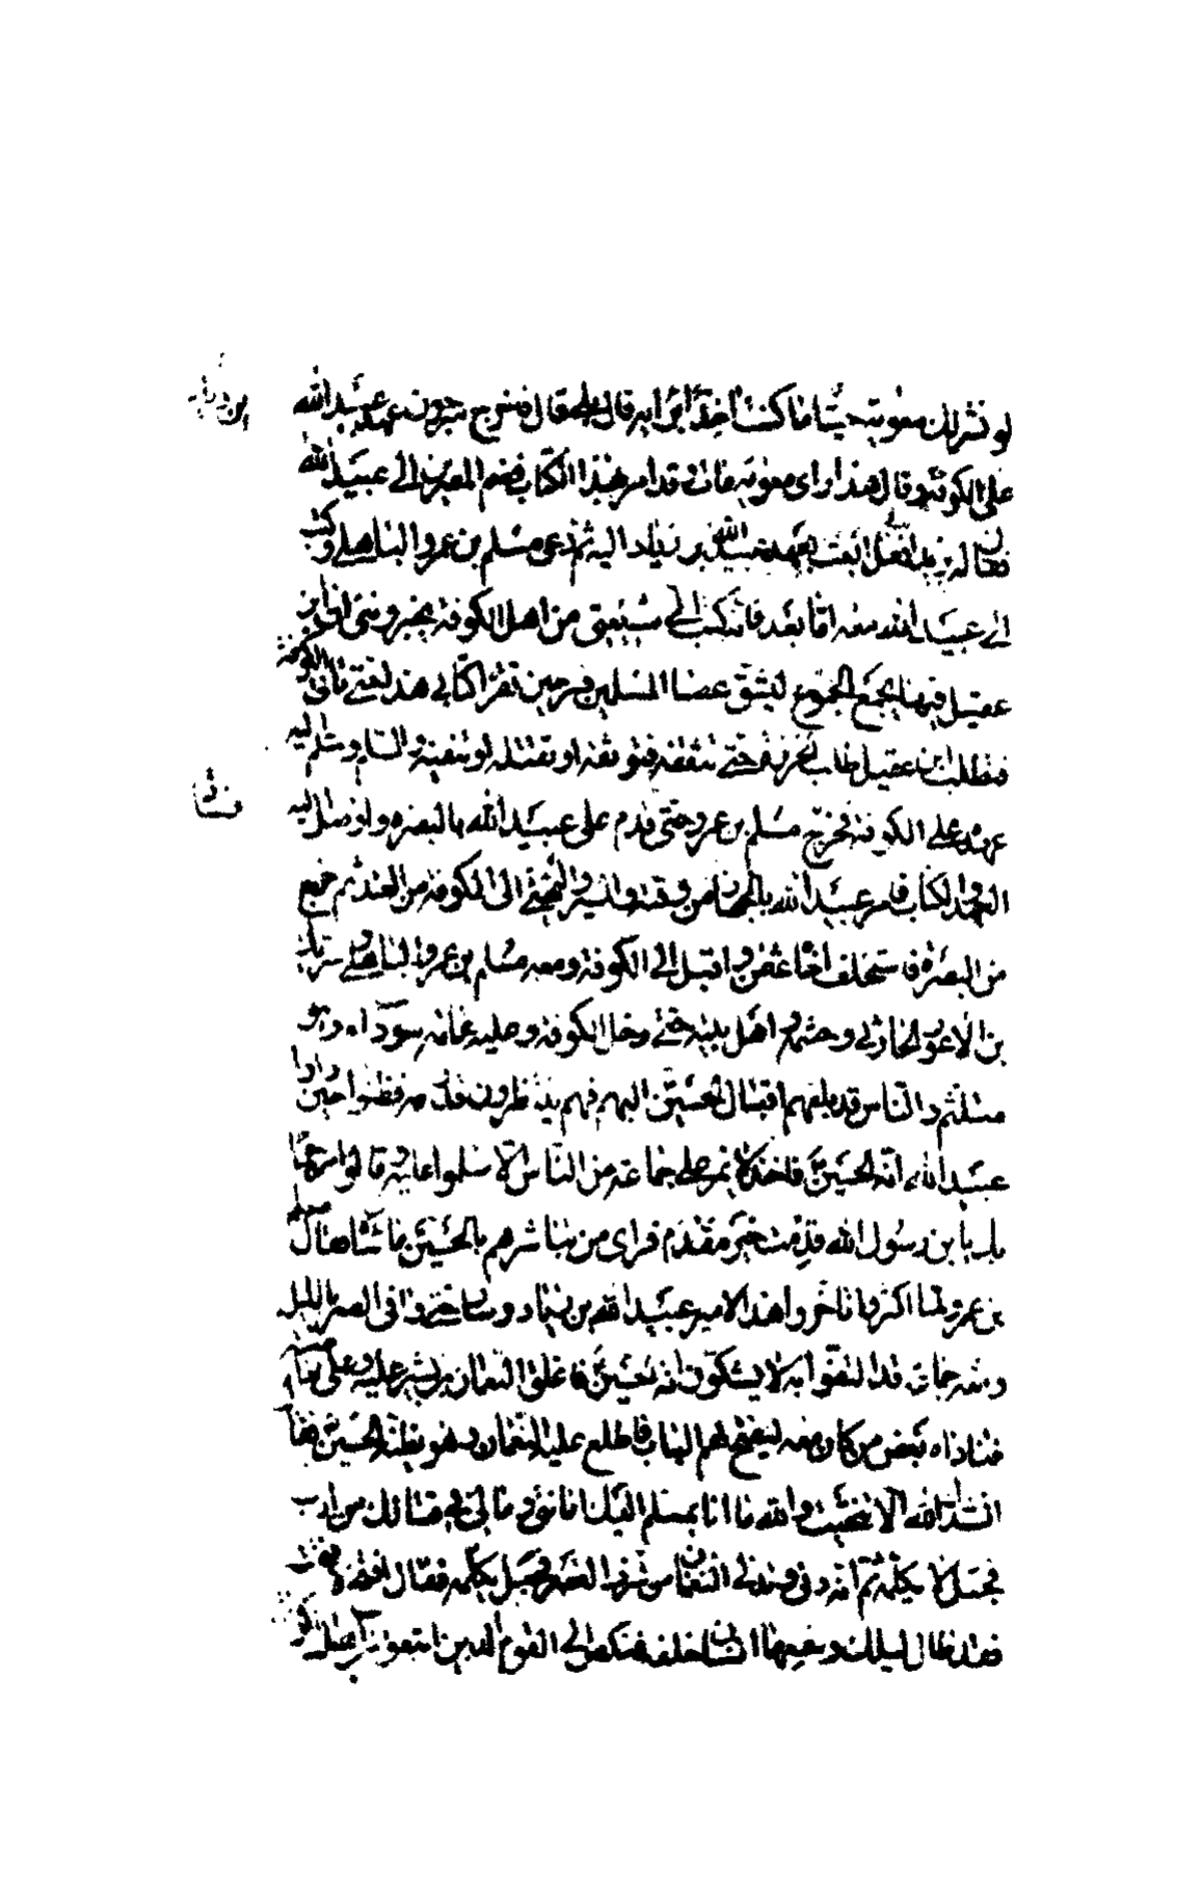 لو نشر لك معوية حيّا ما كنت اخذا برايه قال بلى قال فاخرج سرجون عهد عبيد الله
على الكوفة وقال هذا راى معوية مات وقد امر بهذا الكتاب فضم المصرين الى عبيد الله
فقال له يزيد افعل ابعث بعهد عبيد الله بن زياد اليه ثم دعى مسلم بن عمرو الباهلي وكتب
الى عبيد الله معه اما بعد فانه كتب الي شيعتي من اهل الكوفة يخبرونني ان ابن
عقيل فيها يجمع الجموع ليشق عصا المسلمين فسر حين تقرا كتابي هذا حتى تاتى الكوفة
فتطلب ابن عقيل طلب الخرزة حتى تثقفه فتوثقه او تقتله او تنفيه والسلم وسلم اليه
عهده على الكوفة فخرج مسلم بن عمرو حتى قدم على عبيد الله بالبصرة واوصل اليه
العهد والكتاب فامر عبيد الله بالجهاز من وقته والمسير والتهيئ الى الكوفة من الغد ثم خرج
من البصرة فاستخلف اخاه عثمن واقبل الى الكوفة ومعه مسلم بن عمرو الباهلي وشريك
بن الاعور الحارثي وحشمه واهل بيته حتى دخل الكوفة وعليه عمامة سوداء وهو
متلثم والناس قد بلغهم اقبال الحسين اليهم فهم ينتظرون قدومه فظنوا حين راوا
عبيد الله انه الحسين فاخذ لا يمر على جماعة من الناس الا سلموا عليه وقالوا مرحبا
بك يا بن رسول الله قدمت خير مقدم فراى من تباشرهم بالحسين ما ساءه فقال مسلم
بن عمرو لما اكثروا تاخروا هذا الامير عبيد الله بن زياد وسار حتى وافى القصر بالليل
ومعه جماعة قد التفوا به لا يشكون انه الحسين فاغلق النعمان بن بشير عليه وعلى خاصته
فناداه بعض من كان معه ليفتح لهم الباب فاطلع عليه النعمان وهو يظنه الحسين فقال
انشدك الله الا تنحيت والله ما انا بمسلم اليك امانتي وما لي في قتالك من ارب
فجعل لا يكلمه ثم انه دنى وتدلى النعمان من شرف القصر فجعل يكلمه فقال افتح لا فتحت
فقد طال ليلك وسمعها انسان خلفه فنكص الى القوم الذين اتبعوه من اهل الكوفة